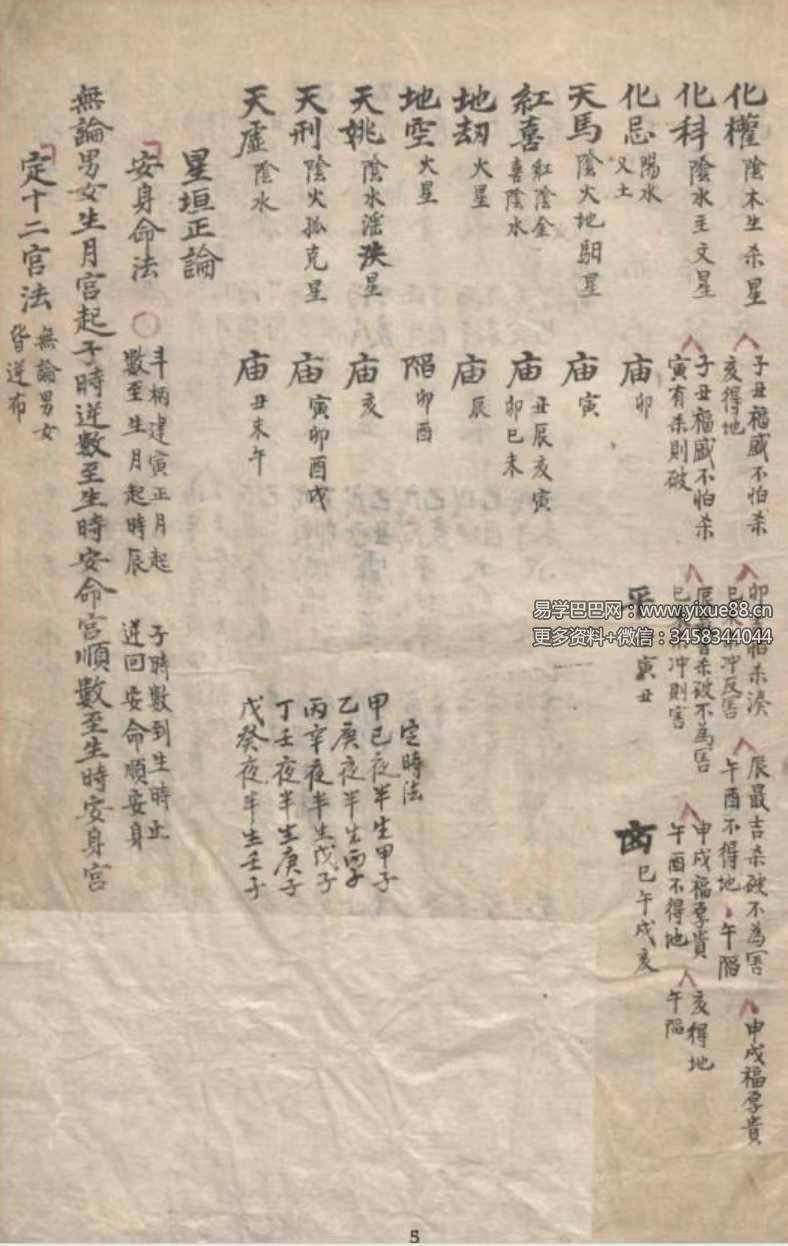 化權 陰木生殺星 子丑福盛不怕殺 亥得地 卯 怕殺湊 巳 冲反害 辰最吉杀破不為害 午酉不得地 午陷 申戌福厚貴
化科 陰水主文星 子丑福盛不怕杀 寅有杀則破 辰 杀破不為害 巳 冲則害 申戌福厚貴 午酉不得地 亥得地 午陷
化忌 陽水 又土 庙 卯 平 寅丑 凶 巳午戌亥
天馬 陰火地駟星 庙 寅
紅喜 紅陰金 喜陰水 庙 丑辰亥寅 卯巳未
地劫 火星 庙 辰
地空 火星 陷 卯酉
天姚 陰水淫泆星 庙 亥
天刑 陰火孤克星 庙 寅卯酉戌
天虛 陰水 庙 丑未午
定時法
甲己夜半生甲子
乙庚夜半生丙子
丙辛夜半生戊子
丁壬夜半生庚子
戊癸夜半生壬子
星垣正論
安身命法 斗柄建寅正月起 子時數到生時止
數至生月起時辰 逆回安命順安身
無論男女生月宫起子時逆數至生時安命宫順數至生時安身宫
定十二宫法 無論男女
皆逆布
易学巴巴网:www.yixue88.cn
更多资料+微信:3458344044
5